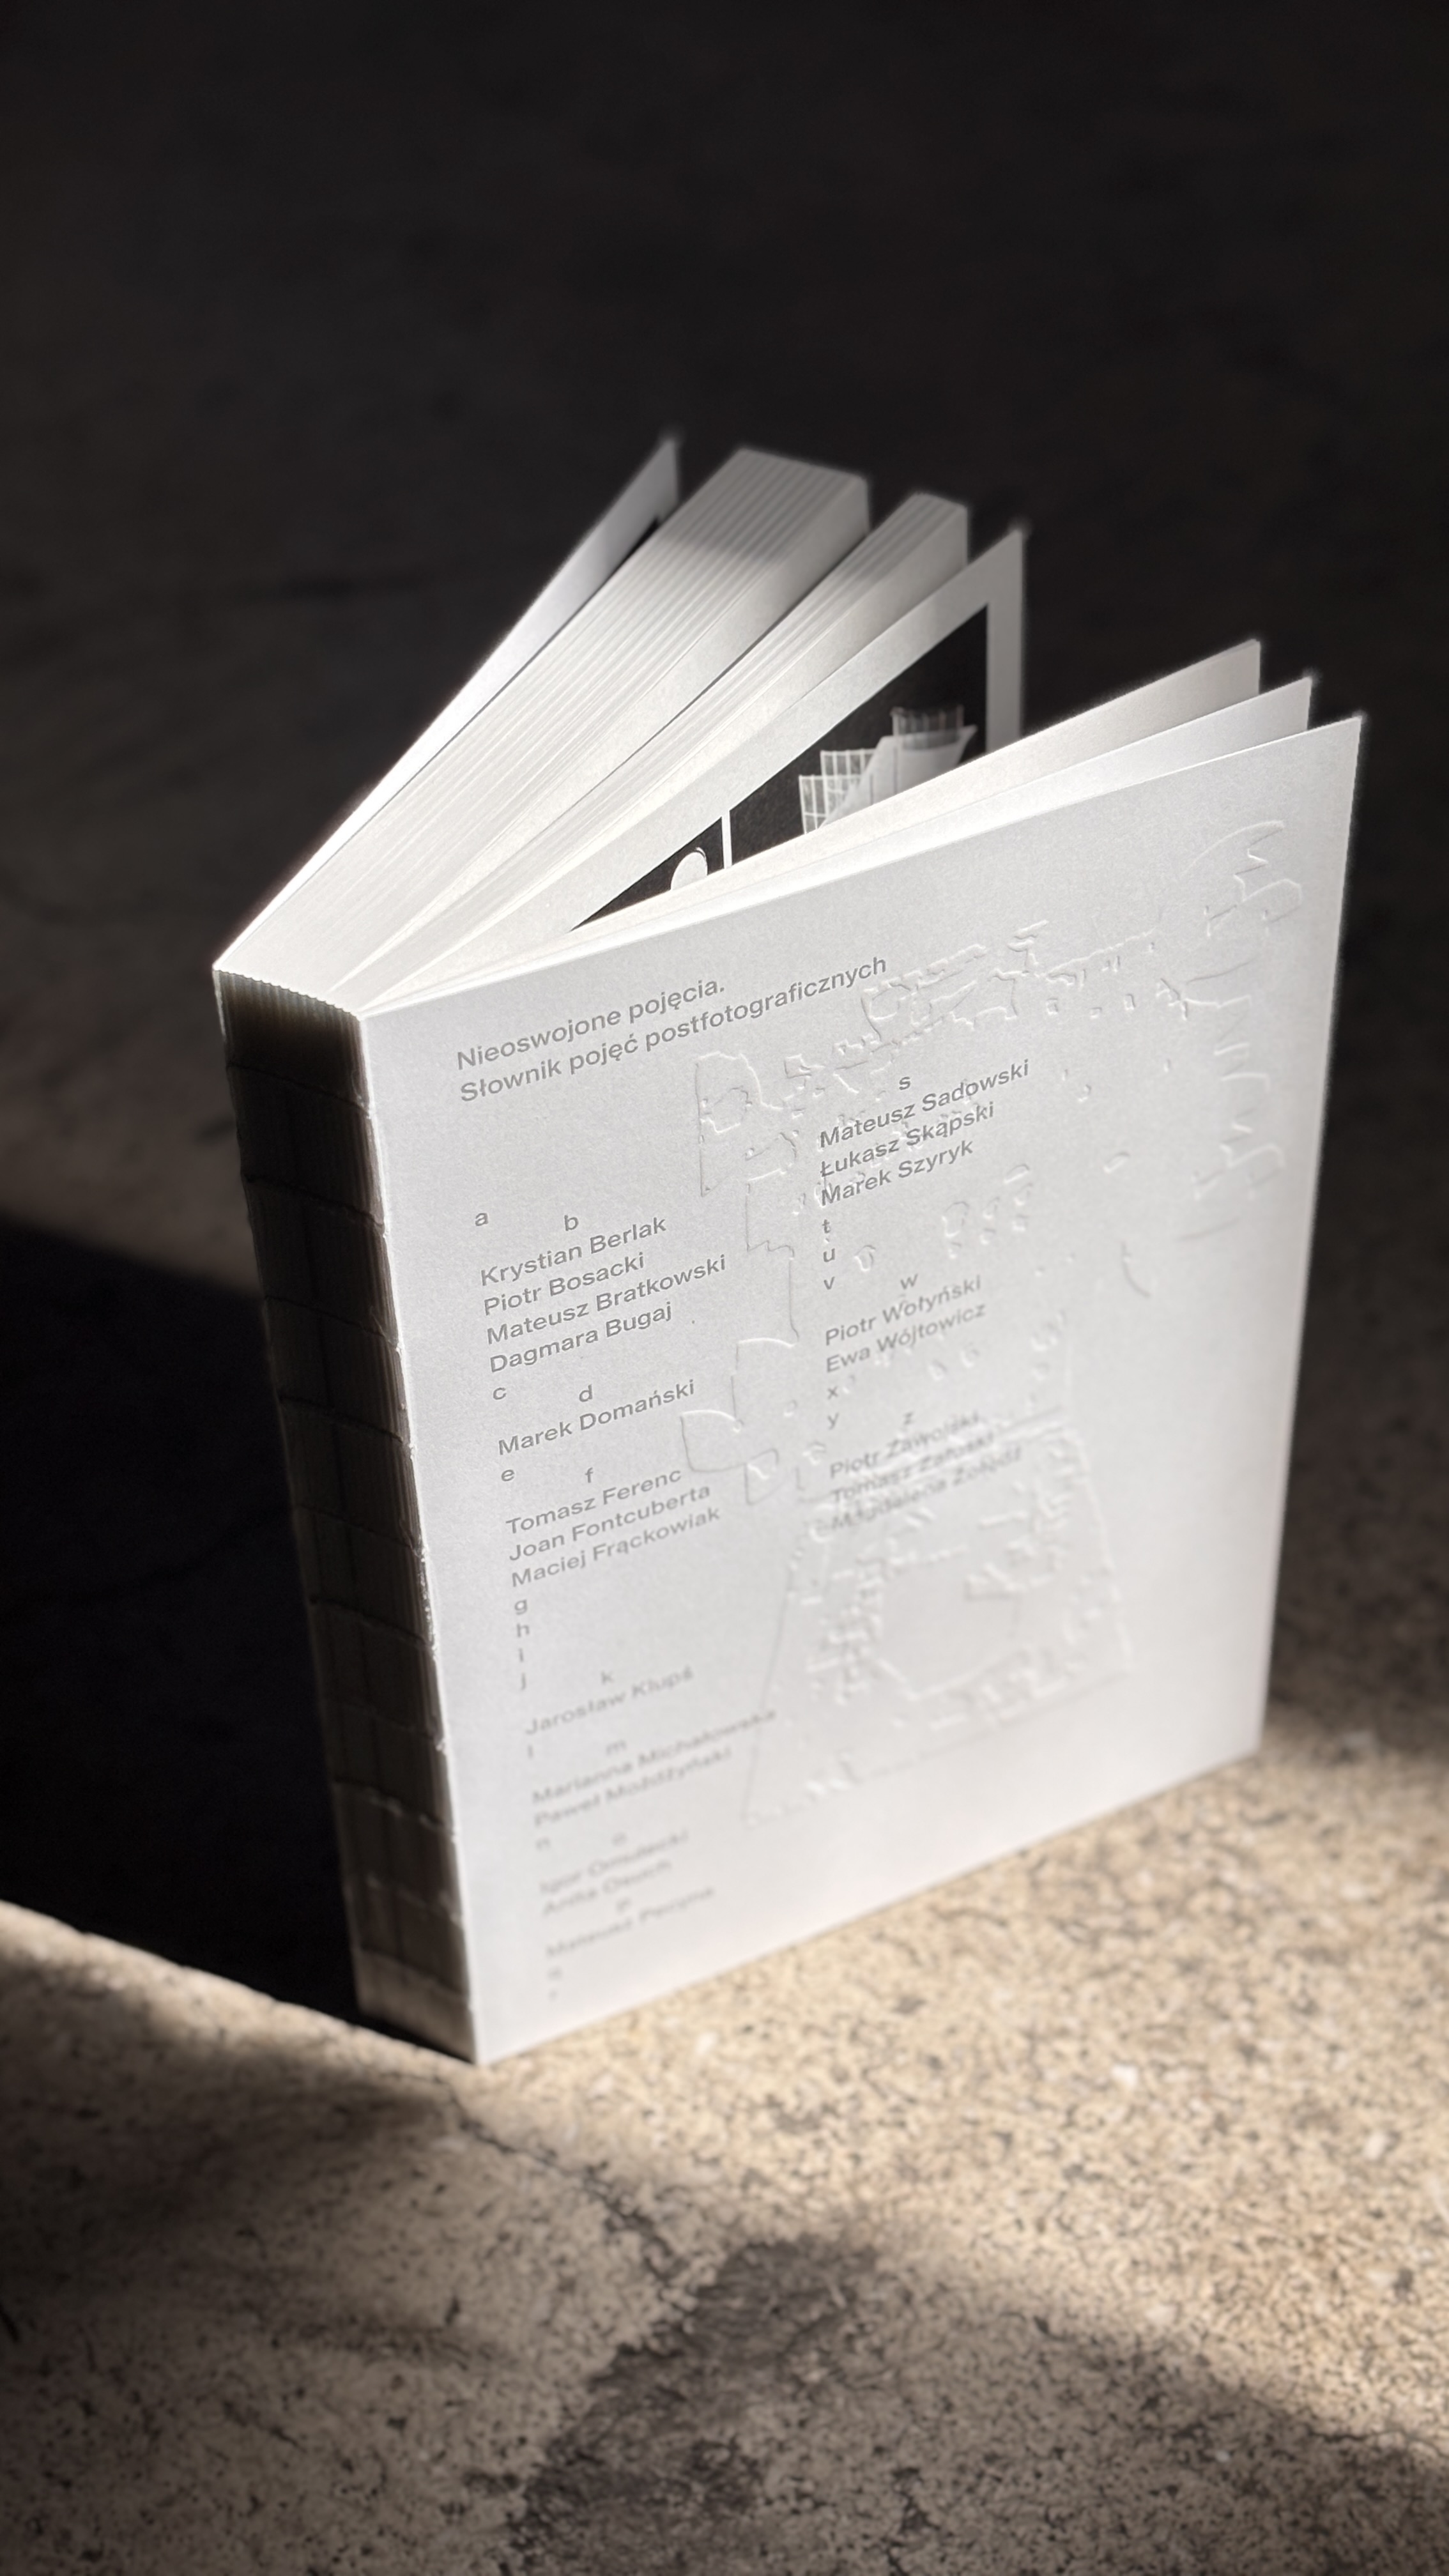 Nieoswojone pojęcia.
Słownik pojęć postfotograficznych
a b
Krystian Berlak
Piotr Bosacki
Mateusz Bratkowski
Dagmara Bugaj
c d
Marek Domański
e f
Tomasz Ferenc
Joan Fontcuberta
Maciej Frąckowiak
g
h
i
j k
Jarosław Klupś
l m
Marianna Michałowska
Paweł Możdżyński
n o
Igor Omulecki
Anita Osuch
p
Mateusz
s
Mateusz Sadowski
Łukasz Skąpski
Marek Szyryk
t
u
v w
Piotr Wołyński
Ewa Wójtowicz
x
y z
Piotr Zawojski
Tomasz Załuski
Magdalena Żołędź